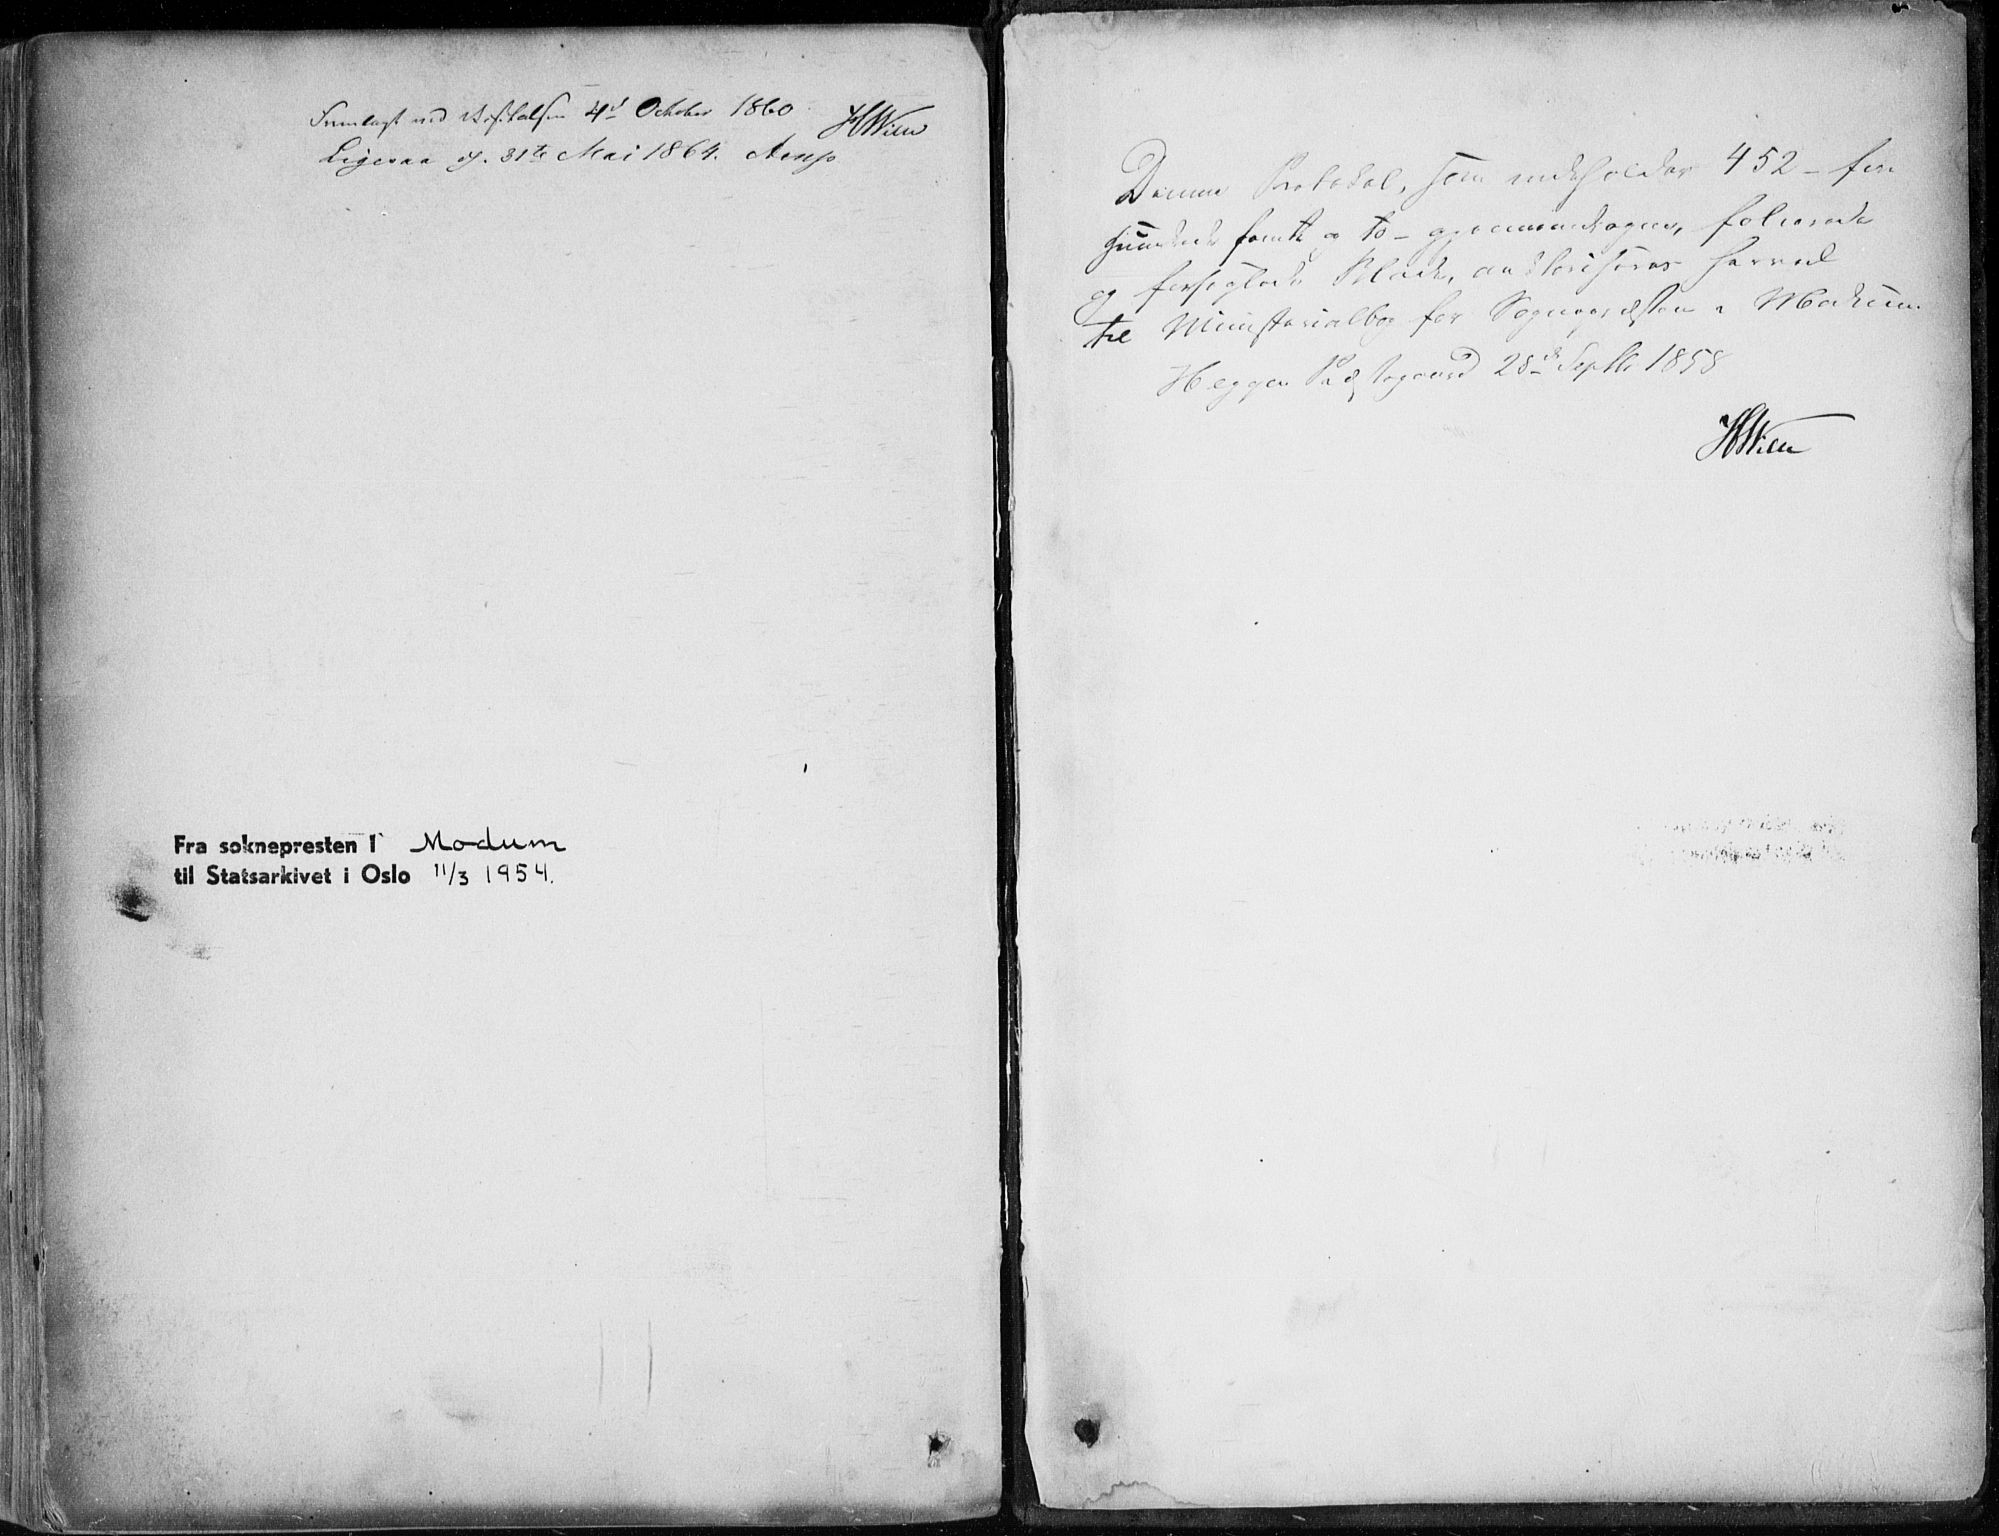 Fremlagt ved 4d October 1860 HWille
Ligesaa d. 31te Mai 1864.
Fra soknepresten i Modum
til Statsarkivet i Oslo 11/3 1954.
Denne Protokol, som indeholder 452 – fire
hundrede femti og to – gjennemdragne, folierede
og forseglede Blade, authoriseres herved
til Ministerialbog for Sognepræsten i Modum.
Heggen Præstegaard 28de Septbr 1858
HWille